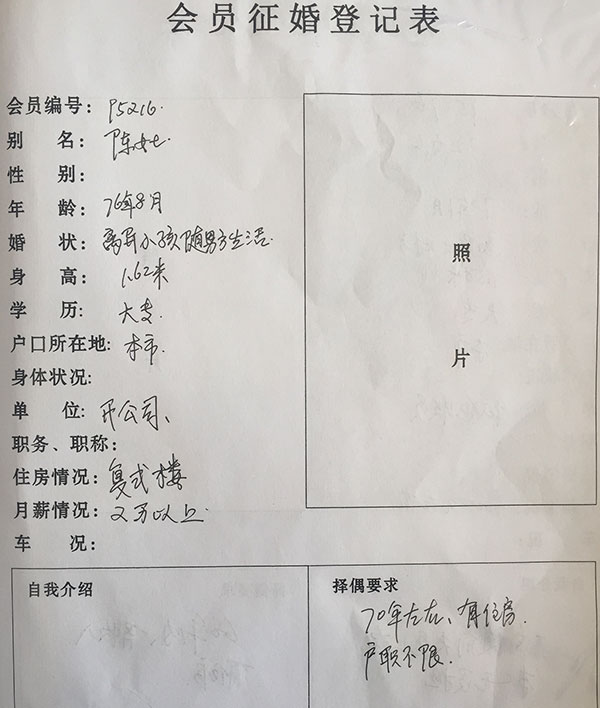 会员征婚登记表
会员编号：P5216.
别 名：陈女士
性 别：
年 龄：76年8月
婚 状：离异小孩随男方生活.
身 高：1.62米
学 历：大专.
户口所在地：本市.
身体状况：
单 位：开公司、
职务、职称：
住房情况：复式楼
月薪情况：2万以上
车 况：
照
片
自我介绍
择偶要求
70年左右、有住房.
户职不限.